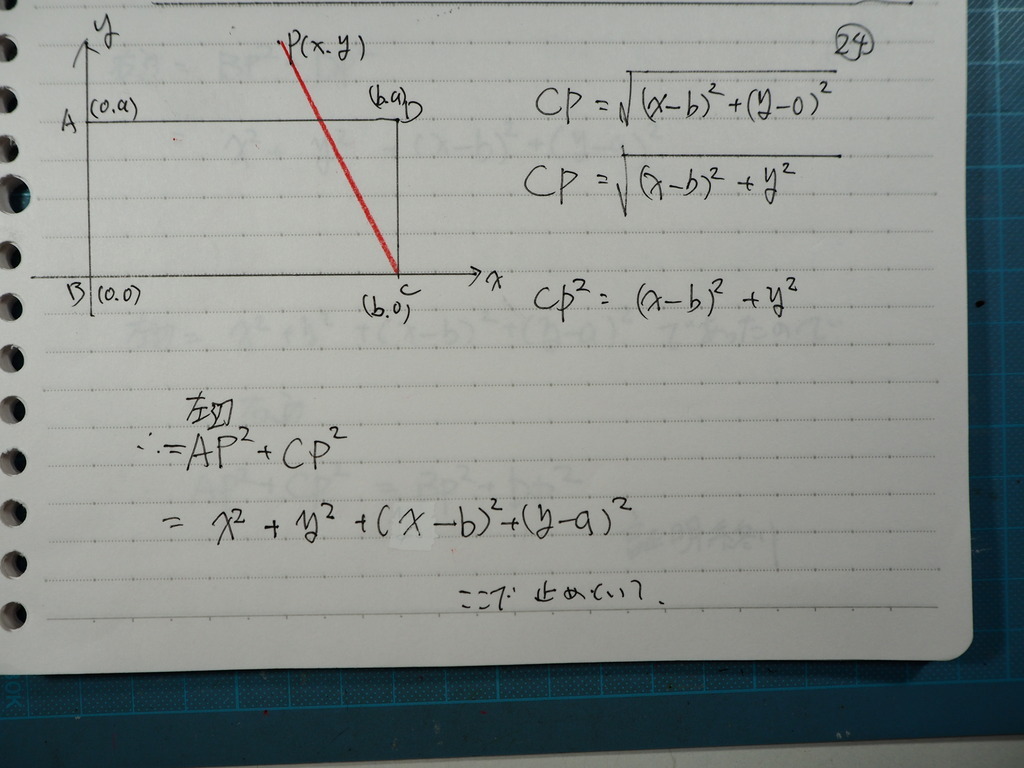 24
y
P(x.y)
A (0.a)
(b.a) D
B (0.0)
C
(b.0)
x
CP = √(x-b)² + (y-0)²
CP = √(x-b)² + y²
CP² = (x-b)² + y²
左辺
∴ = AP² + CP²
= x² + y² + (x-b)² + (y-a)²
ここで止めといて.